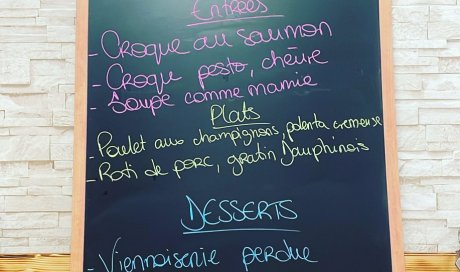 Entrées
- Croque au saumon
- Croque pesto, chèvre
- Soupe comme mamie
Plats
- Poulet aux champignons, polenta crémeuse
- Roti de porc, gratin Dauphinois
DESSERTS
- Viennoiserie perdue